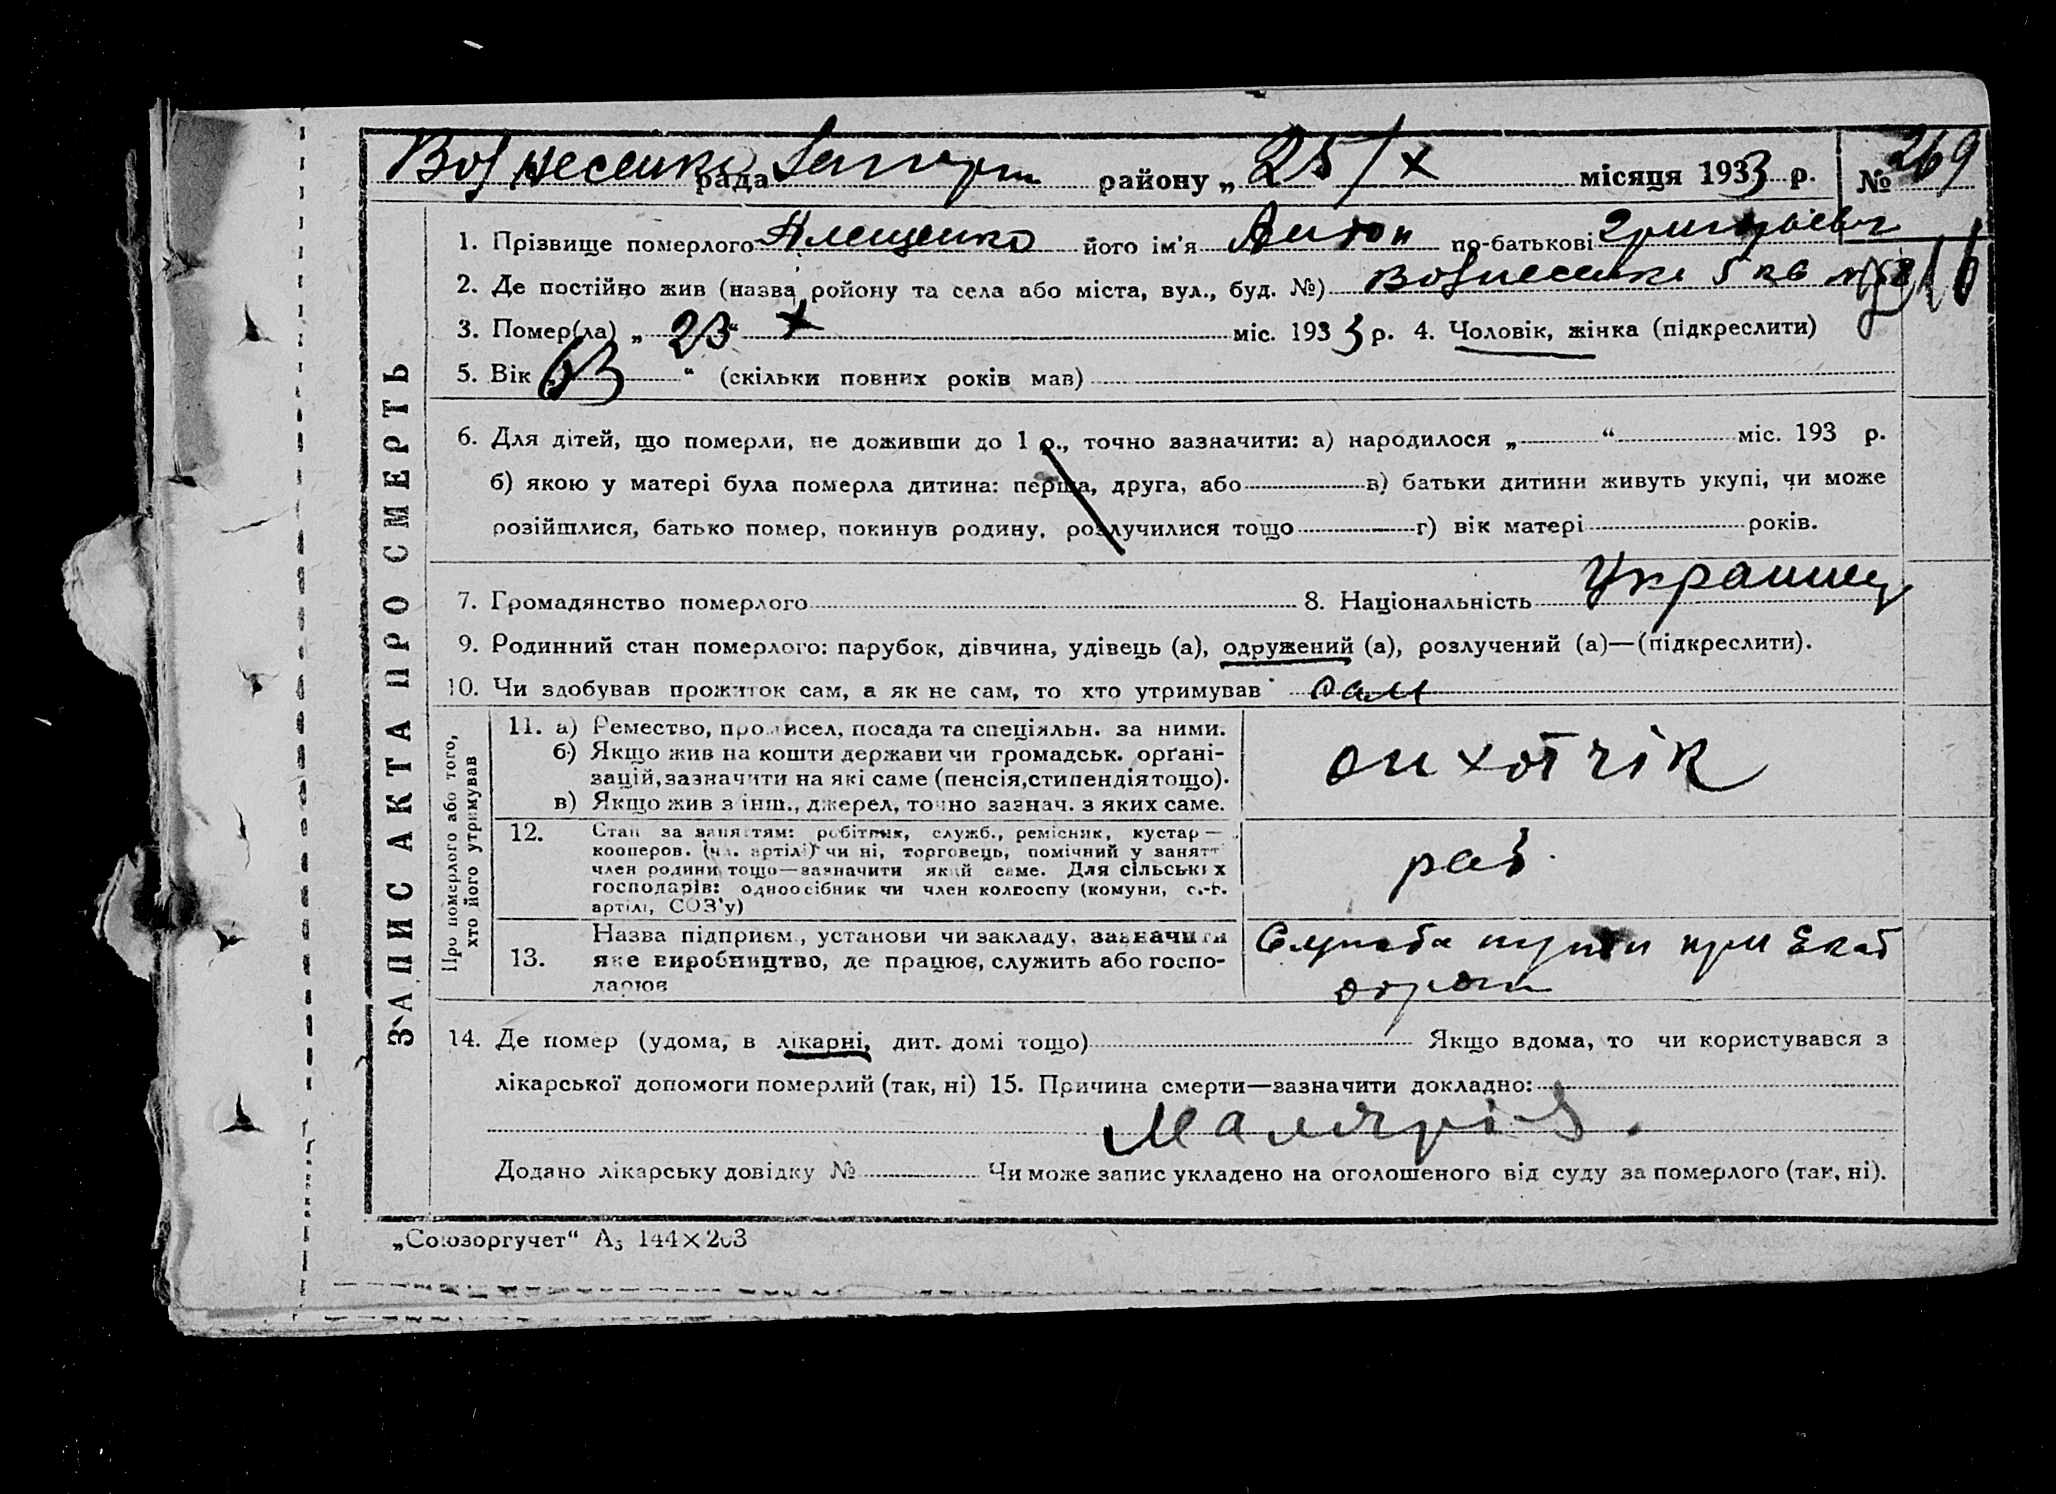 Вознесенка рада Запоріж району „ 25 / X місяця 1933 р. № 269
1. Прізвище померлого Клещенко його ім'я Антон по-батькові Григорьевич
2. Де постійно жив (назва ройону та села або міста, вул., буд. №) Вознесенка 5 кв
3. Помер(ла) „ 23 “ X міс. 1933 р. 4. Чоловік, жінка (підкреслити)
5. Вік „ 63 “ (скільки повних років мав)
6. Для дітей, що померли, не доживши до 1 р., точно зазначити: а) народилося „ “ міс. 193 р.
б) якою у матері була померла дитина: перша, друга, або в) батьки дитини живуть укупі, чи може
розійшлися, батько помер, покинув родину, розлучилися тощо г) вік матері років.
7. Громадянство померлого 8. Національність Украинец
9. Родинний стан померлого: парубок, дівчина, удівець (а), одружений (а), розлучений (а)—(підкреслити).
10. Чи здобував прожиток сам, а як не сам, то хто утримував сам
ЗАПИС АКТА ПРО СМЕРТЬ
Про померлого або того,
хто його утримував
11. а) Ремество, промисел, посада та спеціяльн. за ними.
б) Якщо жив на кошти держави чи громадськ. орґані-
зацій, зазначити на які саме (пенсія, стипендія тощо).
в) Якщо жив з інш., джерел, точно зазнач. з яких саме.
12. Стан за заняттям: робітник, служб., ремісник, кустар—
кооперов. (чл. артілі) чи ні, торговець, помічний у занятт
член родини тощо—зазначити який саме. Для сільських
господарів: одноосібник чи член колгоспу (комуни, с.-г.
артілі, СОЗ'у)
раб
13. Назва підприєм., установи чи закладу, зазначити
яке виробництво, де працює, служить або госпо-
дарює
Служба пути при Екат
14. Де помер (удома, в лікарні, дит. домі тощо) Якщо вдома, то чи користувався з
лікарської допомоги померлий (так, ні) 15. Причина смерти—зазначити докладно:
Малярія.
Додано лікарську довідку № Чи може запис укладено на оголошеного від суду за померлого (так, ні).
„Союзоргучет“ А₅ 144×203